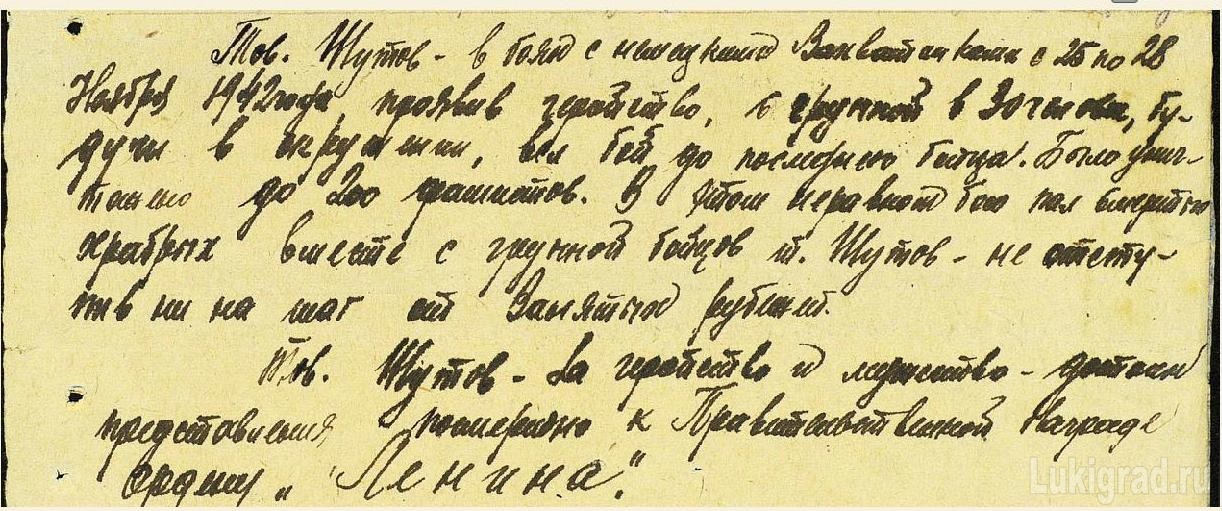 Тов. Шутов - в боях с немецкими Захватчиками с 25 по 28
Ноября 1942 года, проявив геройство, с группой в 30 человек, бу-
дучи в окружении, вел бой до последнего бойца. Было унич-
тожено до 200 фашистов. В этом неравном бою пал смертью
храбрых вместе с группой бойцов т. Шутов - не отсту-
пив ни на шаг от Занятых рубежей.
Тов. Шутов - За геройство и мужество - достоин
представления посмертно к Правительственной Награде
Ордену „Ленина".
Lukigrad.ru